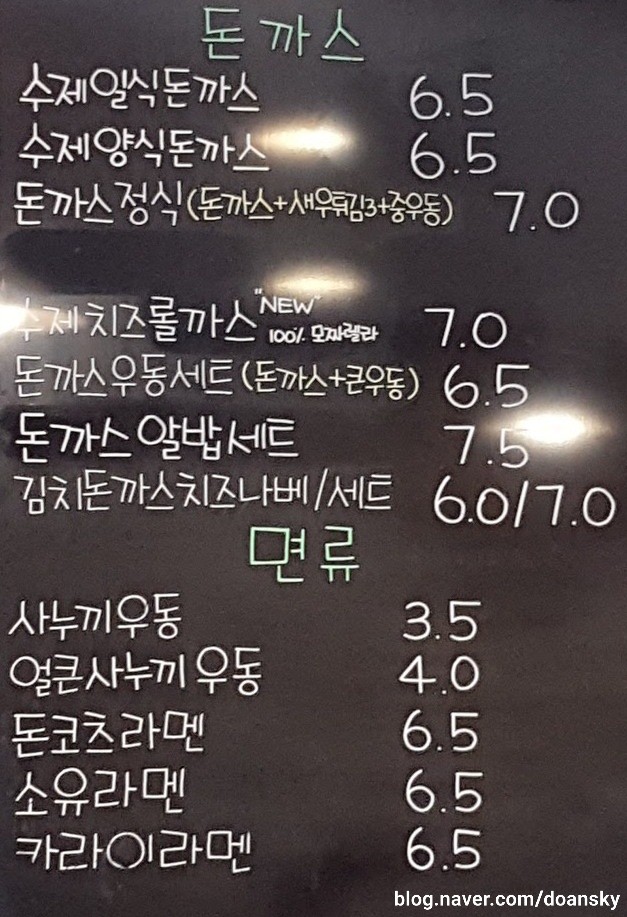 돈까스
수제일식돈까스 6.5
수제양식돈까스 6.5
돈까스정식(돈까스+새우튀김3+중우동) 7.0
수제치즈롤까스 "NEW" 100% 모짜렐라 7.0
돈까스우동세트(돈까스+큰우동) 6.5
돈까스알밥세트 7.5
김치돈까스치즈나베/세트 6.0/7.0
면류
사누끼우동 3.5
얼큰사누끼우동 4.0
돈코츠라멘 6.5
소유라멘 6.5
카라이라멘 6.5
blog.naver.com/doansky